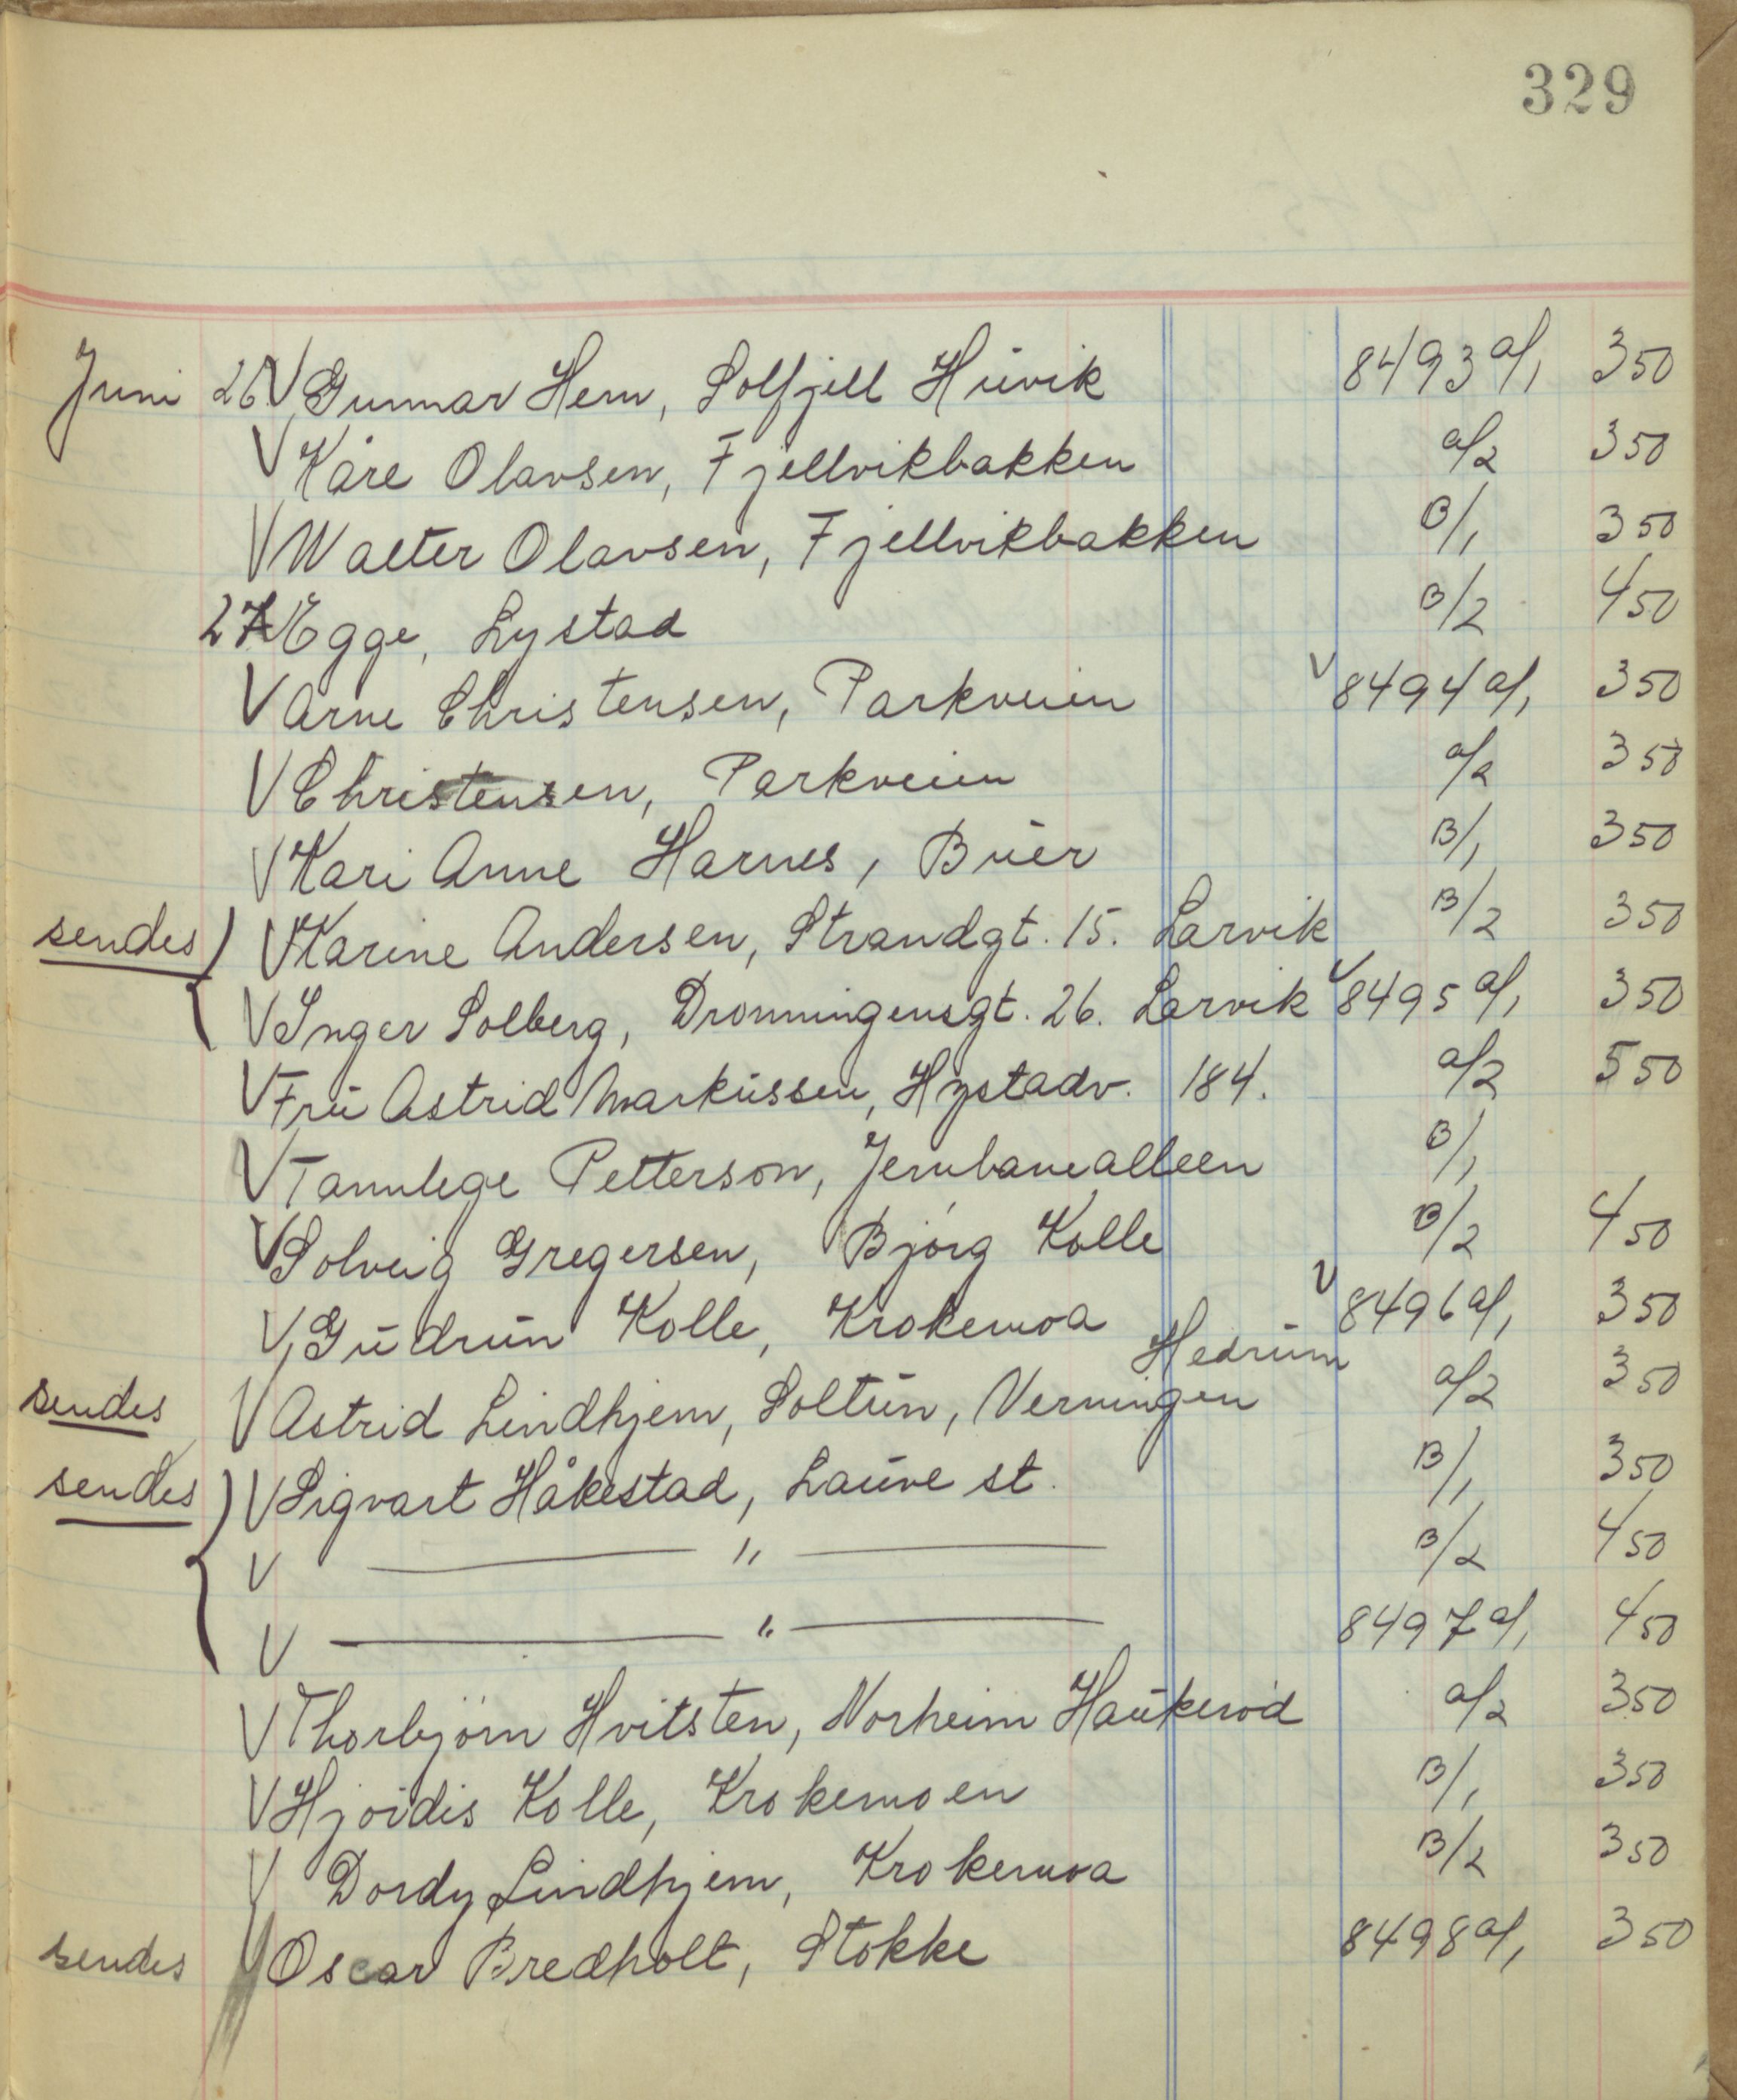 329
Juni 26 V Gunnar Hem, Solfjell Hüvik 8493 a/1 350
V Kåre Olavsen, Fjellvikbakken a/2 350
V Walter Olavsen, Fjellvikbakken B/1 350
27 V Egge, Lystad B/2 450
V Arne Christensen, Parkveien V 8494 a/1 350
V Christensen, Parkveien a/2 350
V Kari Anne Harnes, Büer B/1 350
sendes V Karine Andersen, Strandgt. 15. Larvik B/2 350
V Inger Solberg, Dronningensgt. 26. Larvik V 8495 a/1 350
V Frü Astrid Marküssen, Hystadv. 184. a/2 550
V Tannlege Petterson, Jernbanealleen B/1
V Solveig Gregersen, Bjørg Kolle B/2 450
V Güdrün Kolle, Krokemoa V 8496 a/1 350
Hedrüm
sendes V Astrid Lindhjem, Soltün, Verningen a/2 350
sendes V Sigvart Håkestad, Laüve st. B/1 350
V — " — B/2 450
V — " — 8497 a/1 450
V Thorbjørn Hvitsten, Norheim Haükerød a/2 350
V Hjørdis Kolle, Krokemoen B/1 350
V Dordy Lindhjem, Krokemoa B/2 350
sendes V Oscar Bredholt, Stokke 8498 a/1 350